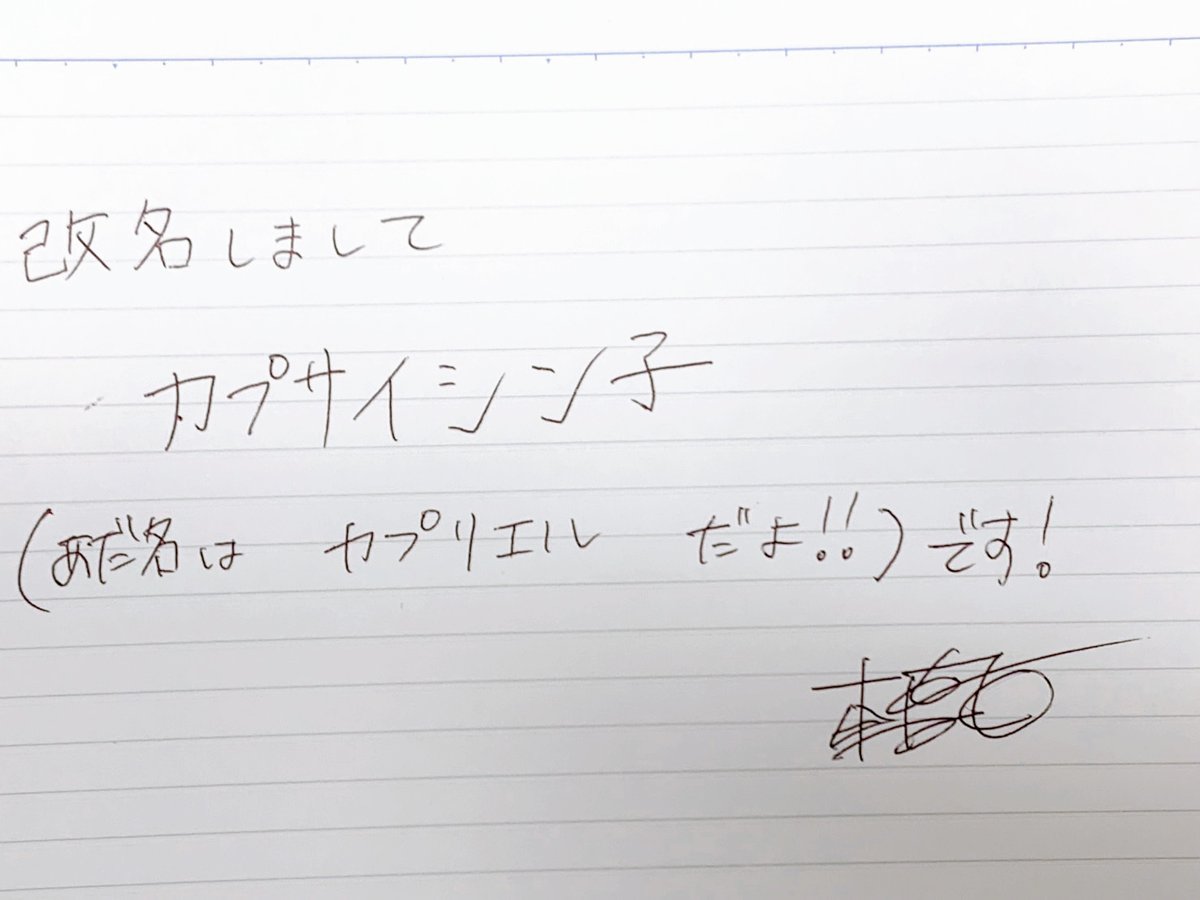 改名しまして
カプサイシン子
(あだ名は カプリエル だよ!!)です!